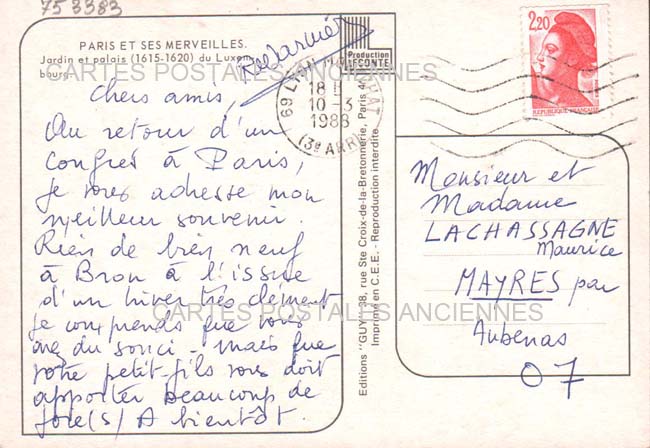 75 3383
PARIS ET SES MERVEILLES.
Jardin et palais (1615-1620) du Luxem-
bourg
Production
LECONTE
69 LYON
18 H
10 - 3
1988
(3e ARR)
2,20
REPUBLIQUE FRANÇAISE
CARTES POSTALES ANCIENNES
Chers amis,
Au retour d'un
congrès à Paris,
je vous adresse mon
meilleur souvenir.
Rien de bien neuf
à Bron à l'issue
d'un hiver très clément
Je comprends que vous
avez du souci - mais que
votre petit-fils vous doit
apporter beaucoup de
joie(s) A bientôt.
Editions "GUY" 38, rue Ste Croix-de-la-Bretonnerie, Paris 4e
Imprimé en C.E.E. - Reproduction interdite
Monsieur et
Madame
LACHASSAGNE
Maurice
MAYRES par
Aubenas
07
CARTES POSTALES ANCIENNES